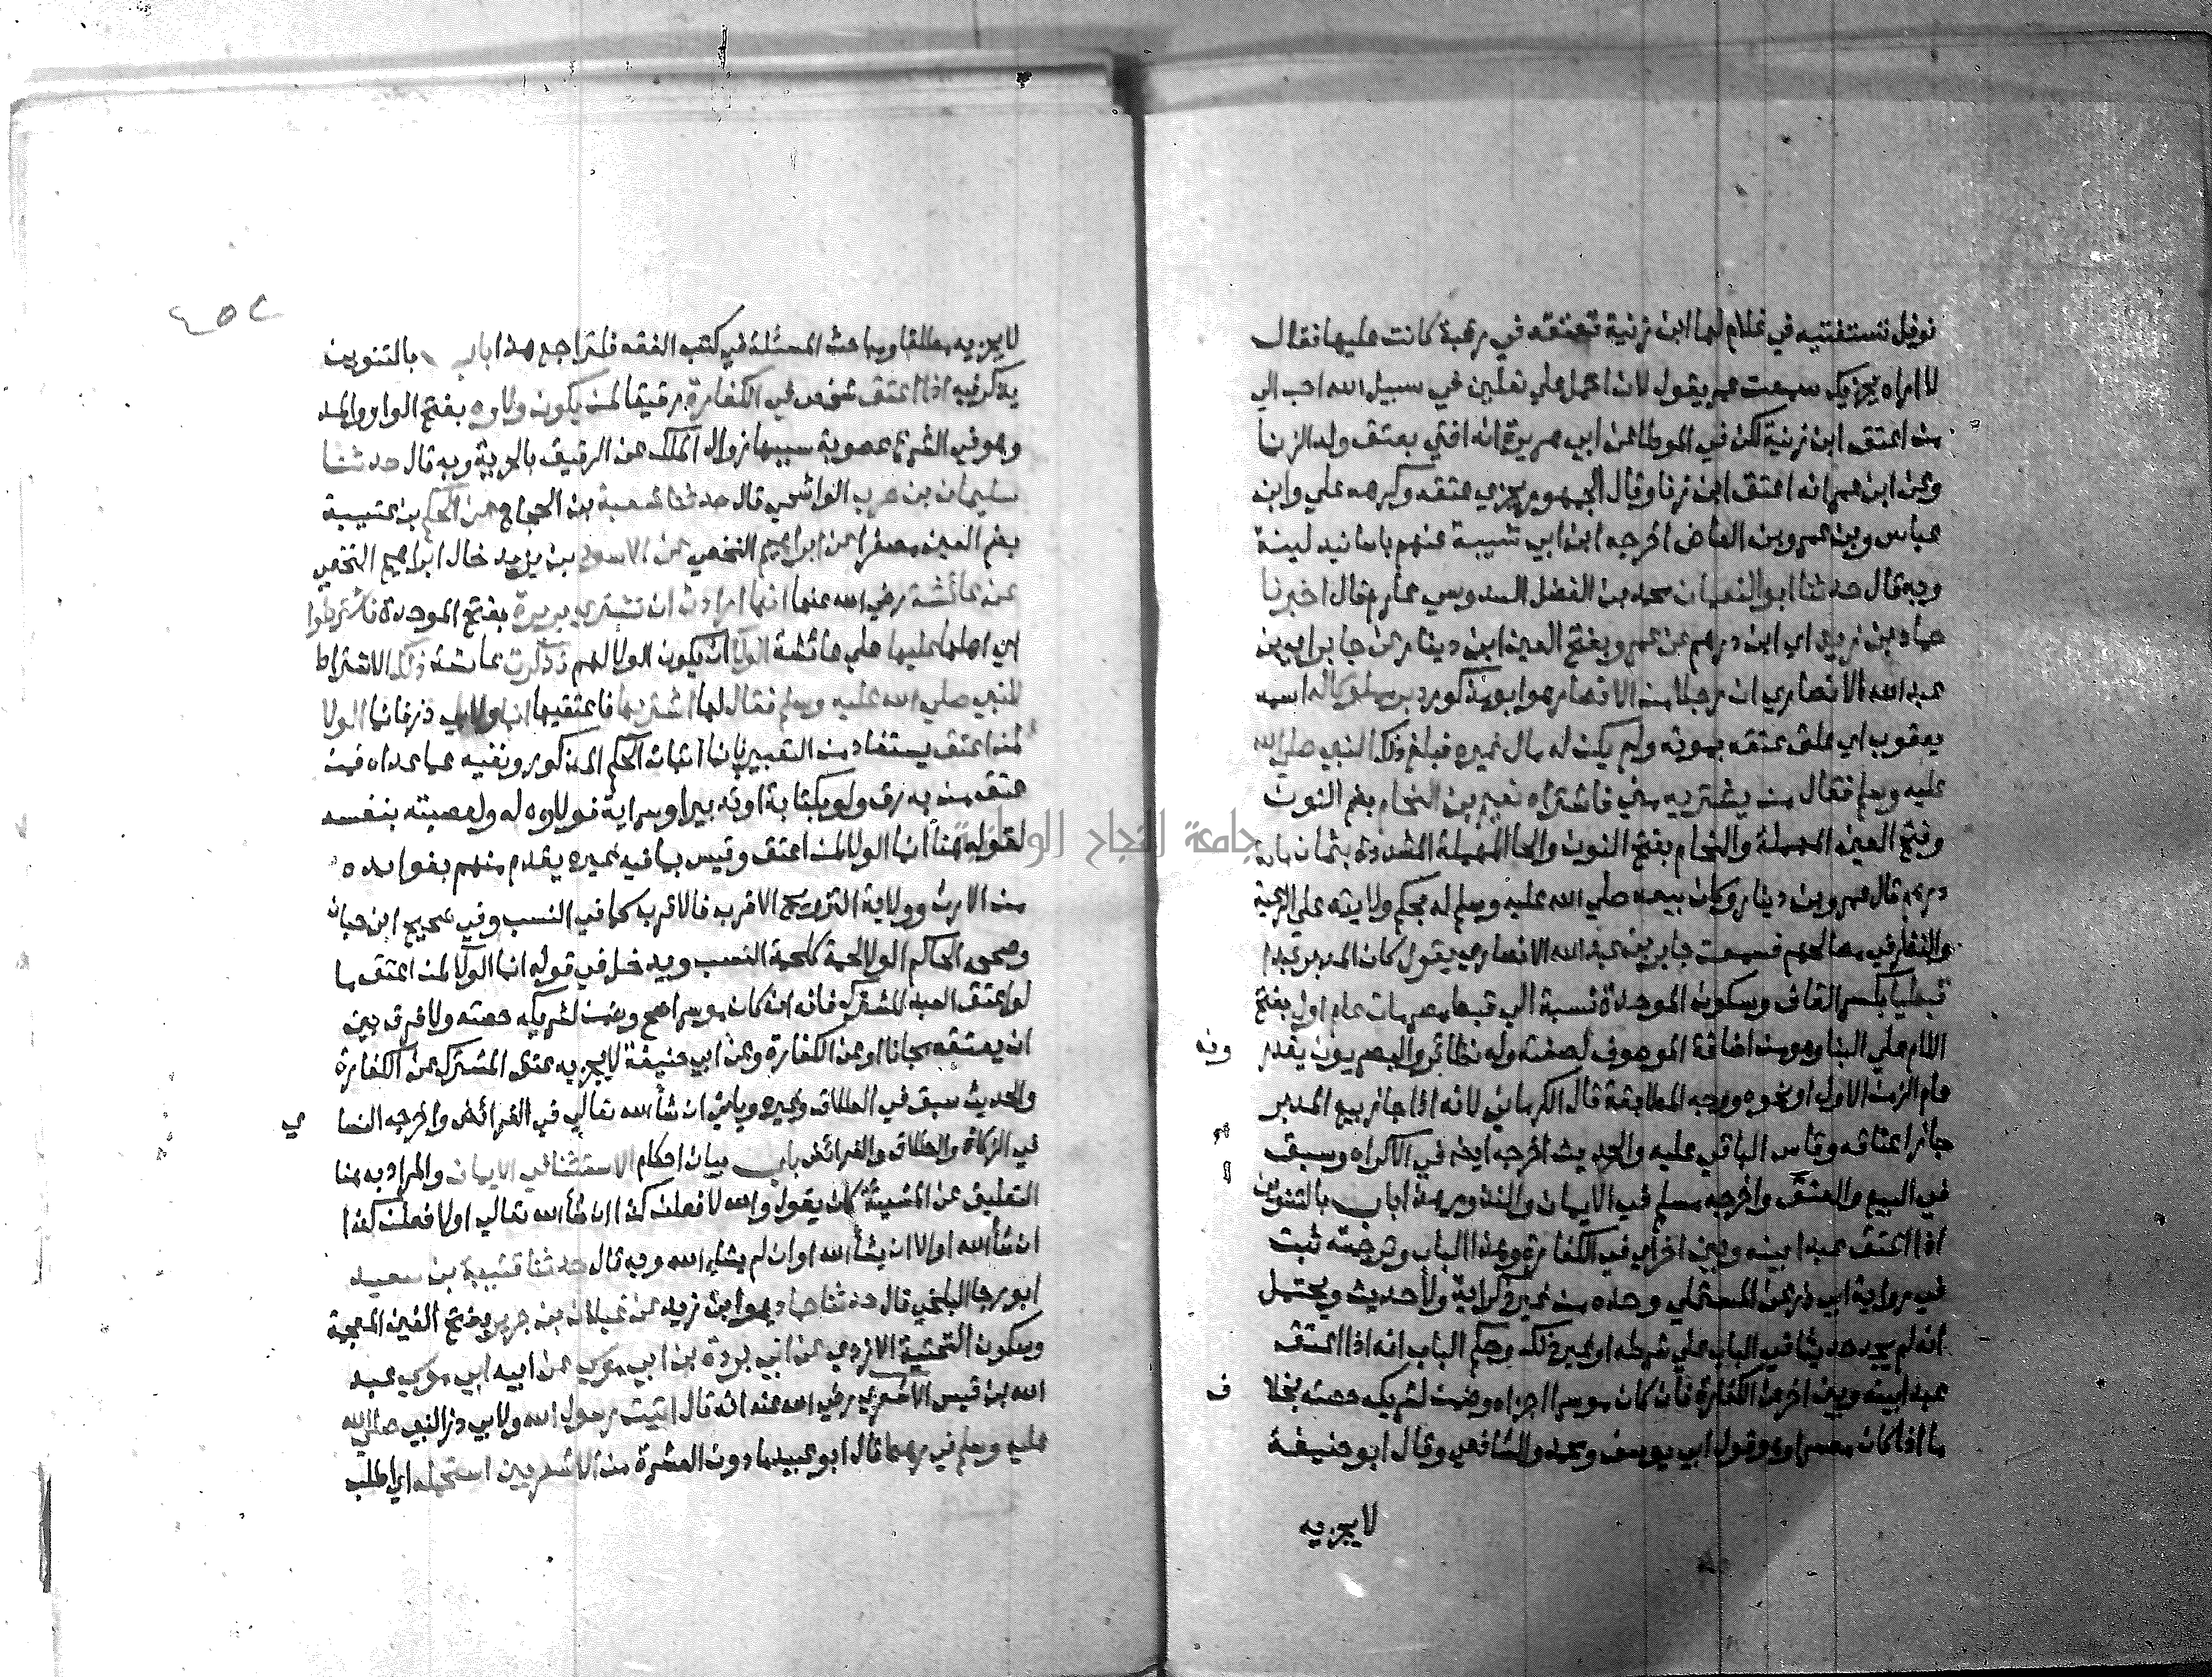 نوفل تستفتيه في غلام لها ابن زنية تعتقه في رقبة كانت عليها فقال
لا اراه يجزيك سمعت عمر يقول لان احمل علي نعلين في سبيل الله احب الي
من اعتق ابن زنية لكن في الموطا عن ابي هريرة انه افتي بعتق ولد الزنا
وعن ابن عمر انه اعتق ابن زنا وقال الجمهور يجزي عتقه وكرهه علي وابن
عباس وبن عمرو بن العاص اخرجه ابن ابي شيبة عنهم باسانيد لينة
وبه قال حدثنا ابو النعمان محمد بن الفضل السدوسي عارم قال اخبرنا
حماد بن زيد اي ابن درهم عن عمرو بفتح العين ابن دينار عن جابر اي بن
عبد الله الانصاري ان رجلا من الانصار هو ابو مذكور دبر مملوكا له اسمه
يعقوب اي علق عتقه بموته ولم يكن له مال غيره فبلغ ذلك النبي صلي الله
عليه وسلم فقال من يشتريه مني فاشتراه نعيم بن النحام بضم النون
وفتح العين المهملة والنحام بفتح النون والحا المهملة المشددة بثمان ماية
درهم قال عمرو بن دينار وكان بيعه صلي الله عليه وسلم له بحكم ولايته علي الرعية
والنظر في مصالحهم فسمعت جابر بن عبد الله الانصاري يقول كان المدبر عبدا
قبطيا بكسر القاف وسكون الموحدة نسبة الي قبط مصر مات عام اول بفتح
اللام علي البنا وهو من اضافة الموصوف لصفته وله نظائر والبصريون يقدر ونه
عام الزمن الاول او نحوه ووجه المطابقة قال الكرماني لانه اذا جاز بيع المدبر
جاز اعتاقه وقاس الباقي عليه والحديث اخرجه ايضا في الاكراه وسبق
في البيع والعتق واخرجه مسلم في الايمان والنذور هذا باب بالتنوين
اذا اعتق عبدا بينه وبين اخر اي في الكفارة وهذا الباب وترجمته ثبت
في رواية ابي ذر عن المستملي وحده من غير ذكر اية ولا حديث ويحتمل
انه لم يجد حديثا في الباب علي شرطه او غير ذلك وحكم الباب انه اذا اعتق
عبدا بينه وبين اخر عن الكفارة فان كان موسرا اجزاه وضمن لشريكه حصته بخلا ف
ما اذا كان معسرا وهو قول ابي يوسف ومحمد والشافعي وقال ابو حنيفة
لا يجزيه
لا يجزيه مطلقا ومباحث المسئلة في كتب الفقه فلتراجع هذا باب بالتنوين
يذكر فيه اذا اعتق شخص في الكفارة رقيقا لمن يكون ولاوه بفتح الواو والمد
وهو في الشرع عصوبة سببها زوال الملك عن الرقيق بالحرية وبه قال حدثنا
سليمان بن حرب الواشحي قال حدثنا شعبة بن الحجاج عن الحكم بن عتيبة
بضم العين مصغرا عن ابراهيم النخعي عن الاسود بن يزيد خال ابراهيم النخعي
عن عائشة رضي الله عنها انها ارادت ان تشتري بريرة بفتح الموحدة فاشترطوا
اي اهلها عليها علي عائشة الولا ان يكون الولا لهم فذكرت عائشة ذلك الاشتراط
للنبي صلي الله عليه وسلم فقال لها اشتريها فاعتقيها انما ولابي ذر فانما الولا
لمن اعتق يستفاد من التعبير بانما اثبات الحكم المذكور ونفيه عما عداه فمن
عتق من به رق ولو بكتابة او تدبير او سراية فولاوه له ولعصبته بنفسه
لقوله هنا انما الولا لمن اعتق وقيس بما فيه غيره يقدم منهم بفوايده
من الارث وولاية التزويج الاقرب فالاقرب كما في النسب وفي صحيح ابن حبان
وصححه الحاكم الولا لحمة كلحمة النسب ويدخل في قوله انما الولا لمن اعتق ما
لو اعتق العبد المشترك فانه ان كان موسرا صح وضمن لشريكه حصته ولا فرق بين
ان يعتقه مجانا او عن الكفارة وعن ابي حنيفة لا يجزيه عتق المشترك عن الكفارة
والحديث سبق في الطلاق وغيره وياتي ان شا الله تعالي في الفرائض واخرجه النسا ي
في الزكاة والطلاق والفرائض باب بيان احكام الاستثنا في الايمان والمراد به هنا
التعليق عن المشيئة كان يقول والله لا فعلن كذا ان شا الله تعالي او لا فعلن كذا
ان شا الله او الا ان يشا الله او ان لم يشا الله وبه قال حدثنا قتيبة بن سعيد
ابو رجا البلخي قال حدثنا حماد هو ابن زيد عن غيلان بن جرير بفتح الغين المعجمة
وسكون التحتية الازدي عن ابي بردة بن ابي موسي عن ابيه ابي موسي عبد
الله بن قيس الاشعري رضي الله عنه انه قال اتيت رسول الله ولابي ذر النبي صلي الله
عليه وسلم في رهط قال ابو عبيد ما دون العشرة من الاشعريين استحمله اي اطلب